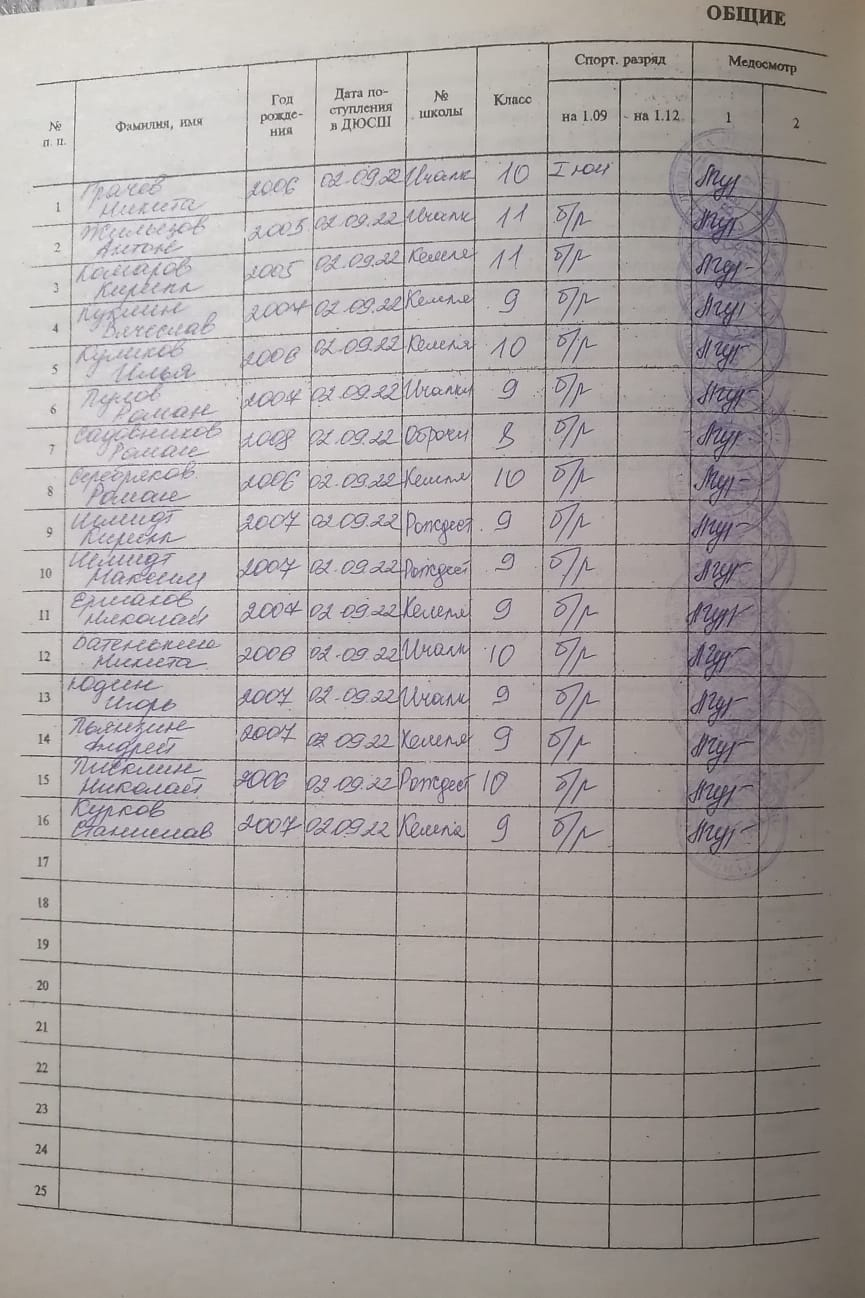 ОБЩИЕ
№ п. п. Фамилия, имя Год рожде- ния Дата по- ступления в ДЮСШ № школы Класс Спорт. разряд Медосмотр
на 1.09 на 1.12 1 2
1 Грачов Никита 2006 02.09.22 Ичалк 10 I юн
2 Антон 2005 02.09.22 Ичалк 11 б/р
3 Комаров Кирилл 2005 02.09.22 Кемля 11 б/р
4 Вячеслав 2007 02.09.22 Кемля 9 б/р
5 Куликов Илья 2006 02.09.22 Кемля 10 б/р
6 Роман 2007 02.09.22 Ичалки 9 б/р
7 Садовников Роман 2008 02.09.22 Оброчн 8 б/р
8 Серебряков Роман 2006 02.09.22 Кемля 10 б/р
9 Шмидт Кирилл 2007 02.09.22 Рождест 9 б/р
10 Шмидт Максим 2007 02.09.22 Рождест 9 б/р
11 Ермаков Николай 2007 02.09.22 Кемля 9 б/р
12 Никита 2006 02.09.22 Ичалк 10 б/р
13 Юдин Игорь 2007 02.09.22 Ичалк 9 б/р
14 Пьянзин Андрей 2007 02.09.22 Кемля 9 б/р
15 Писклин Николай 2006 02.09.22 Рождест 10 б/р
16 Курков Станислав 2007 02.09.22 Кемля 9 б/р
17
18
19
20
21
22
23
24
25